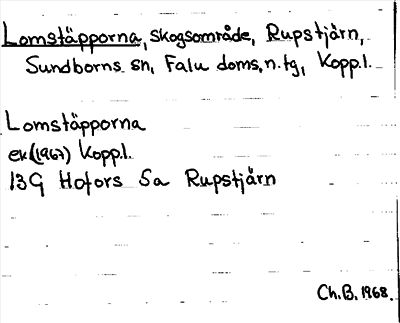 Lomstäpporna, skogsområde, Rupstjärn,
Sundborns sn, Falu doms. n. tg, Kopp. l.
Lomstäpporna
ek (1967) Kopp. l.
13G Hofors 5a Rupstjärn
Ch. B. 1968.